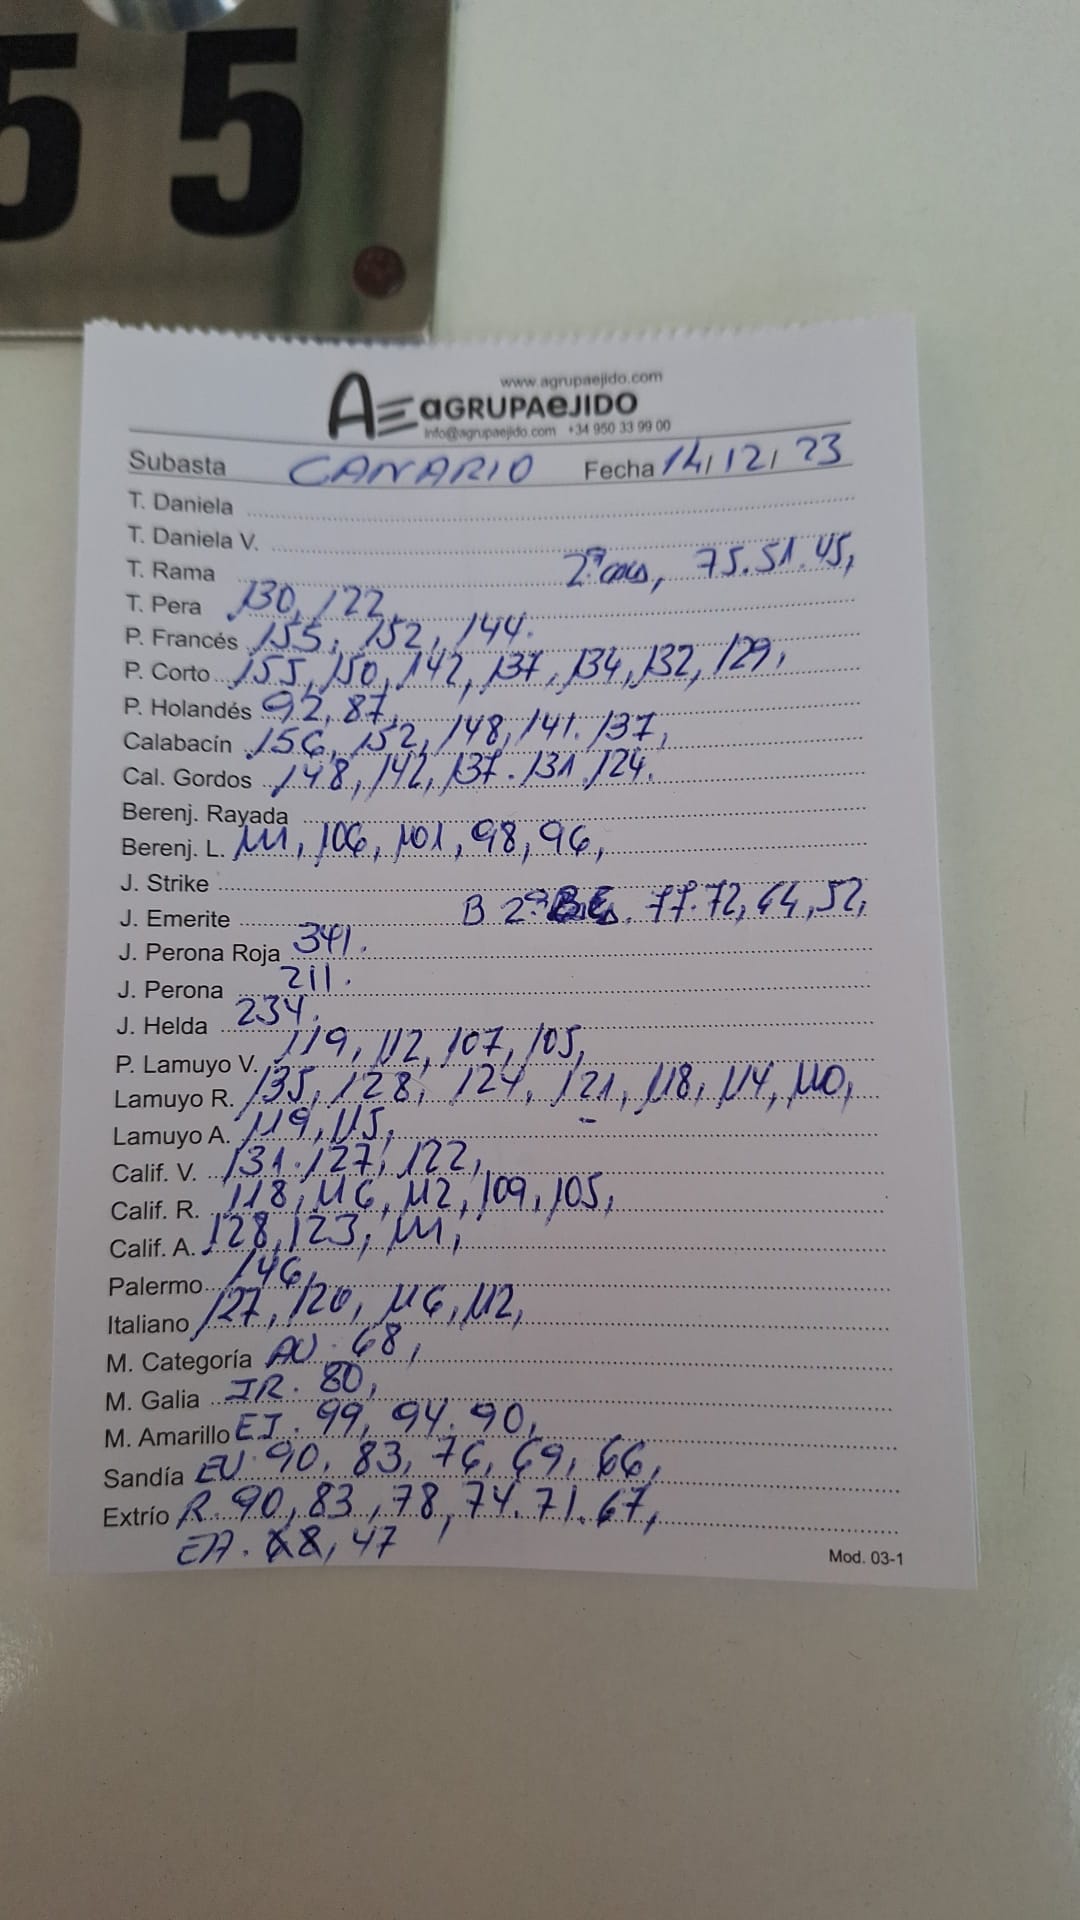 55
www.agrupaejido.com
AE aGRUPAeJIDO
info@agrupaejido.com +34 950 33 99 00
Subasta CANARIO Fecha 14/12/23
T. Daniela
T. Daniela V.
T. Rama 2ªcal, 75.51.45,
T. Pera 130, 122,
P. Francés 155, 152, 144.
P. Corto 155, 150, 142, 137, 134, 132, 129,
P. Holandés 92, 87,
Calabacín 156, 152, 148, 141. 137,
Cal. Gordos 148, 142, 137. 131, 124.
Berenj. Rayada
Berenj. L. 111, 106, 101, 98, 96,
J. Strike
J. Emerite B 2ª 77.72, 64, 52,
J. Perona Roja 341.
J. Perona 211.
J. Helda 234.
P. Lamuyo V. 119, 112, 107, 105,
Lamuyo R. 135, 128, 124, 121, 118, 114, 110,
Lamuyo A. 119, 115,
Calif. V. 131. 127, 122,
Calif. R. 118, 116, 112, 109, 105,
Calif. A. 128, 123, 111,
Palermo 146,
Italiano 127, 120, 116, 112,
M. Categoría AU. 68,
M. Galia IR. 80,
M. Amarillo EI. 99, 94. 90,
Sandía EU. 90, 83, 76, 69, 66,
Extrío R. 90, 83, 78, 74. 71. 67,
EA. 68, 47
Mod. 03-1